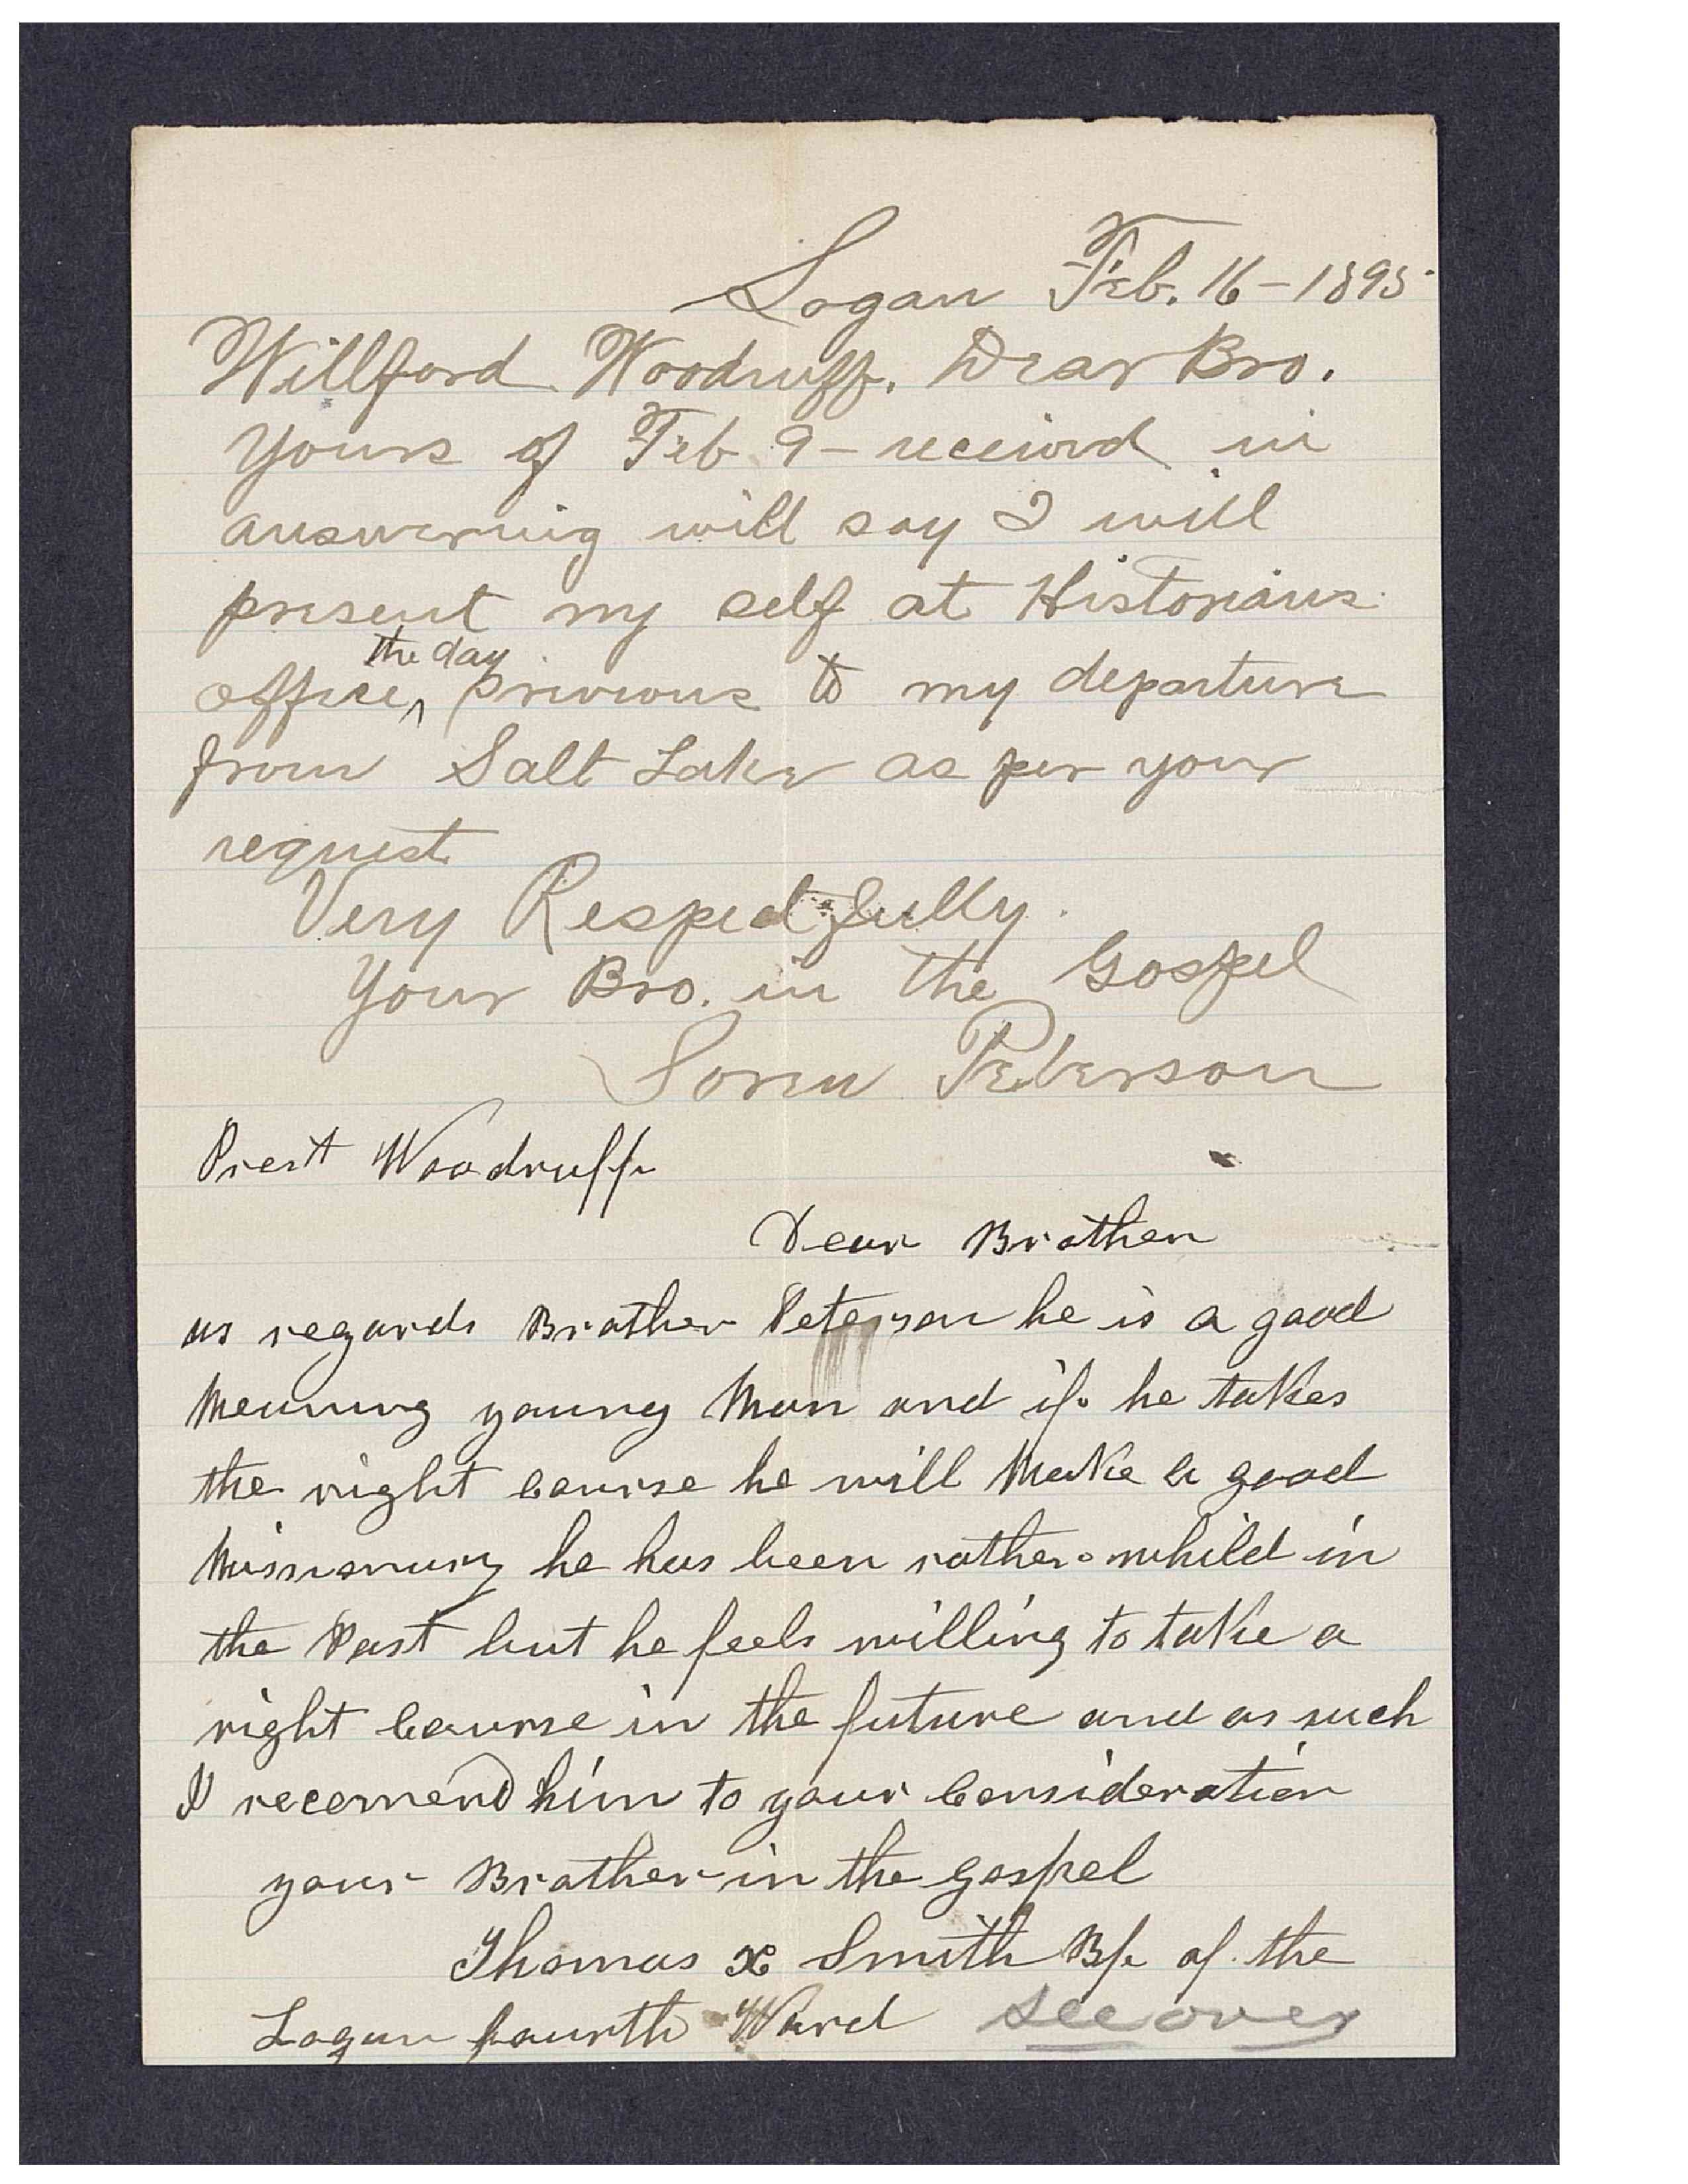 Logan Feb. 16-1895
Willford Woodruff. Dear Bro.
Yours of Feb 9- receivd in
answering will say I will
present my self at Historians
the day
office, ^ previous to my departure
from Salt Lake as per your
request
Very Respectfully.
Your Bro. in the Gospel
Soren Peterson
Prest Woodruff
Dear Brother
as regards Brother Peterson he is a good
Meaning young Man and if he takes
the right Course he will Make a good
Missionary he has been rather whild in
the Past but he feels willing to take a
right Course in the future and as such
I recomend him to your Consideration
your Brother in the gospel
Thomas X Smith Bp of the
Logan fourth Ward see over